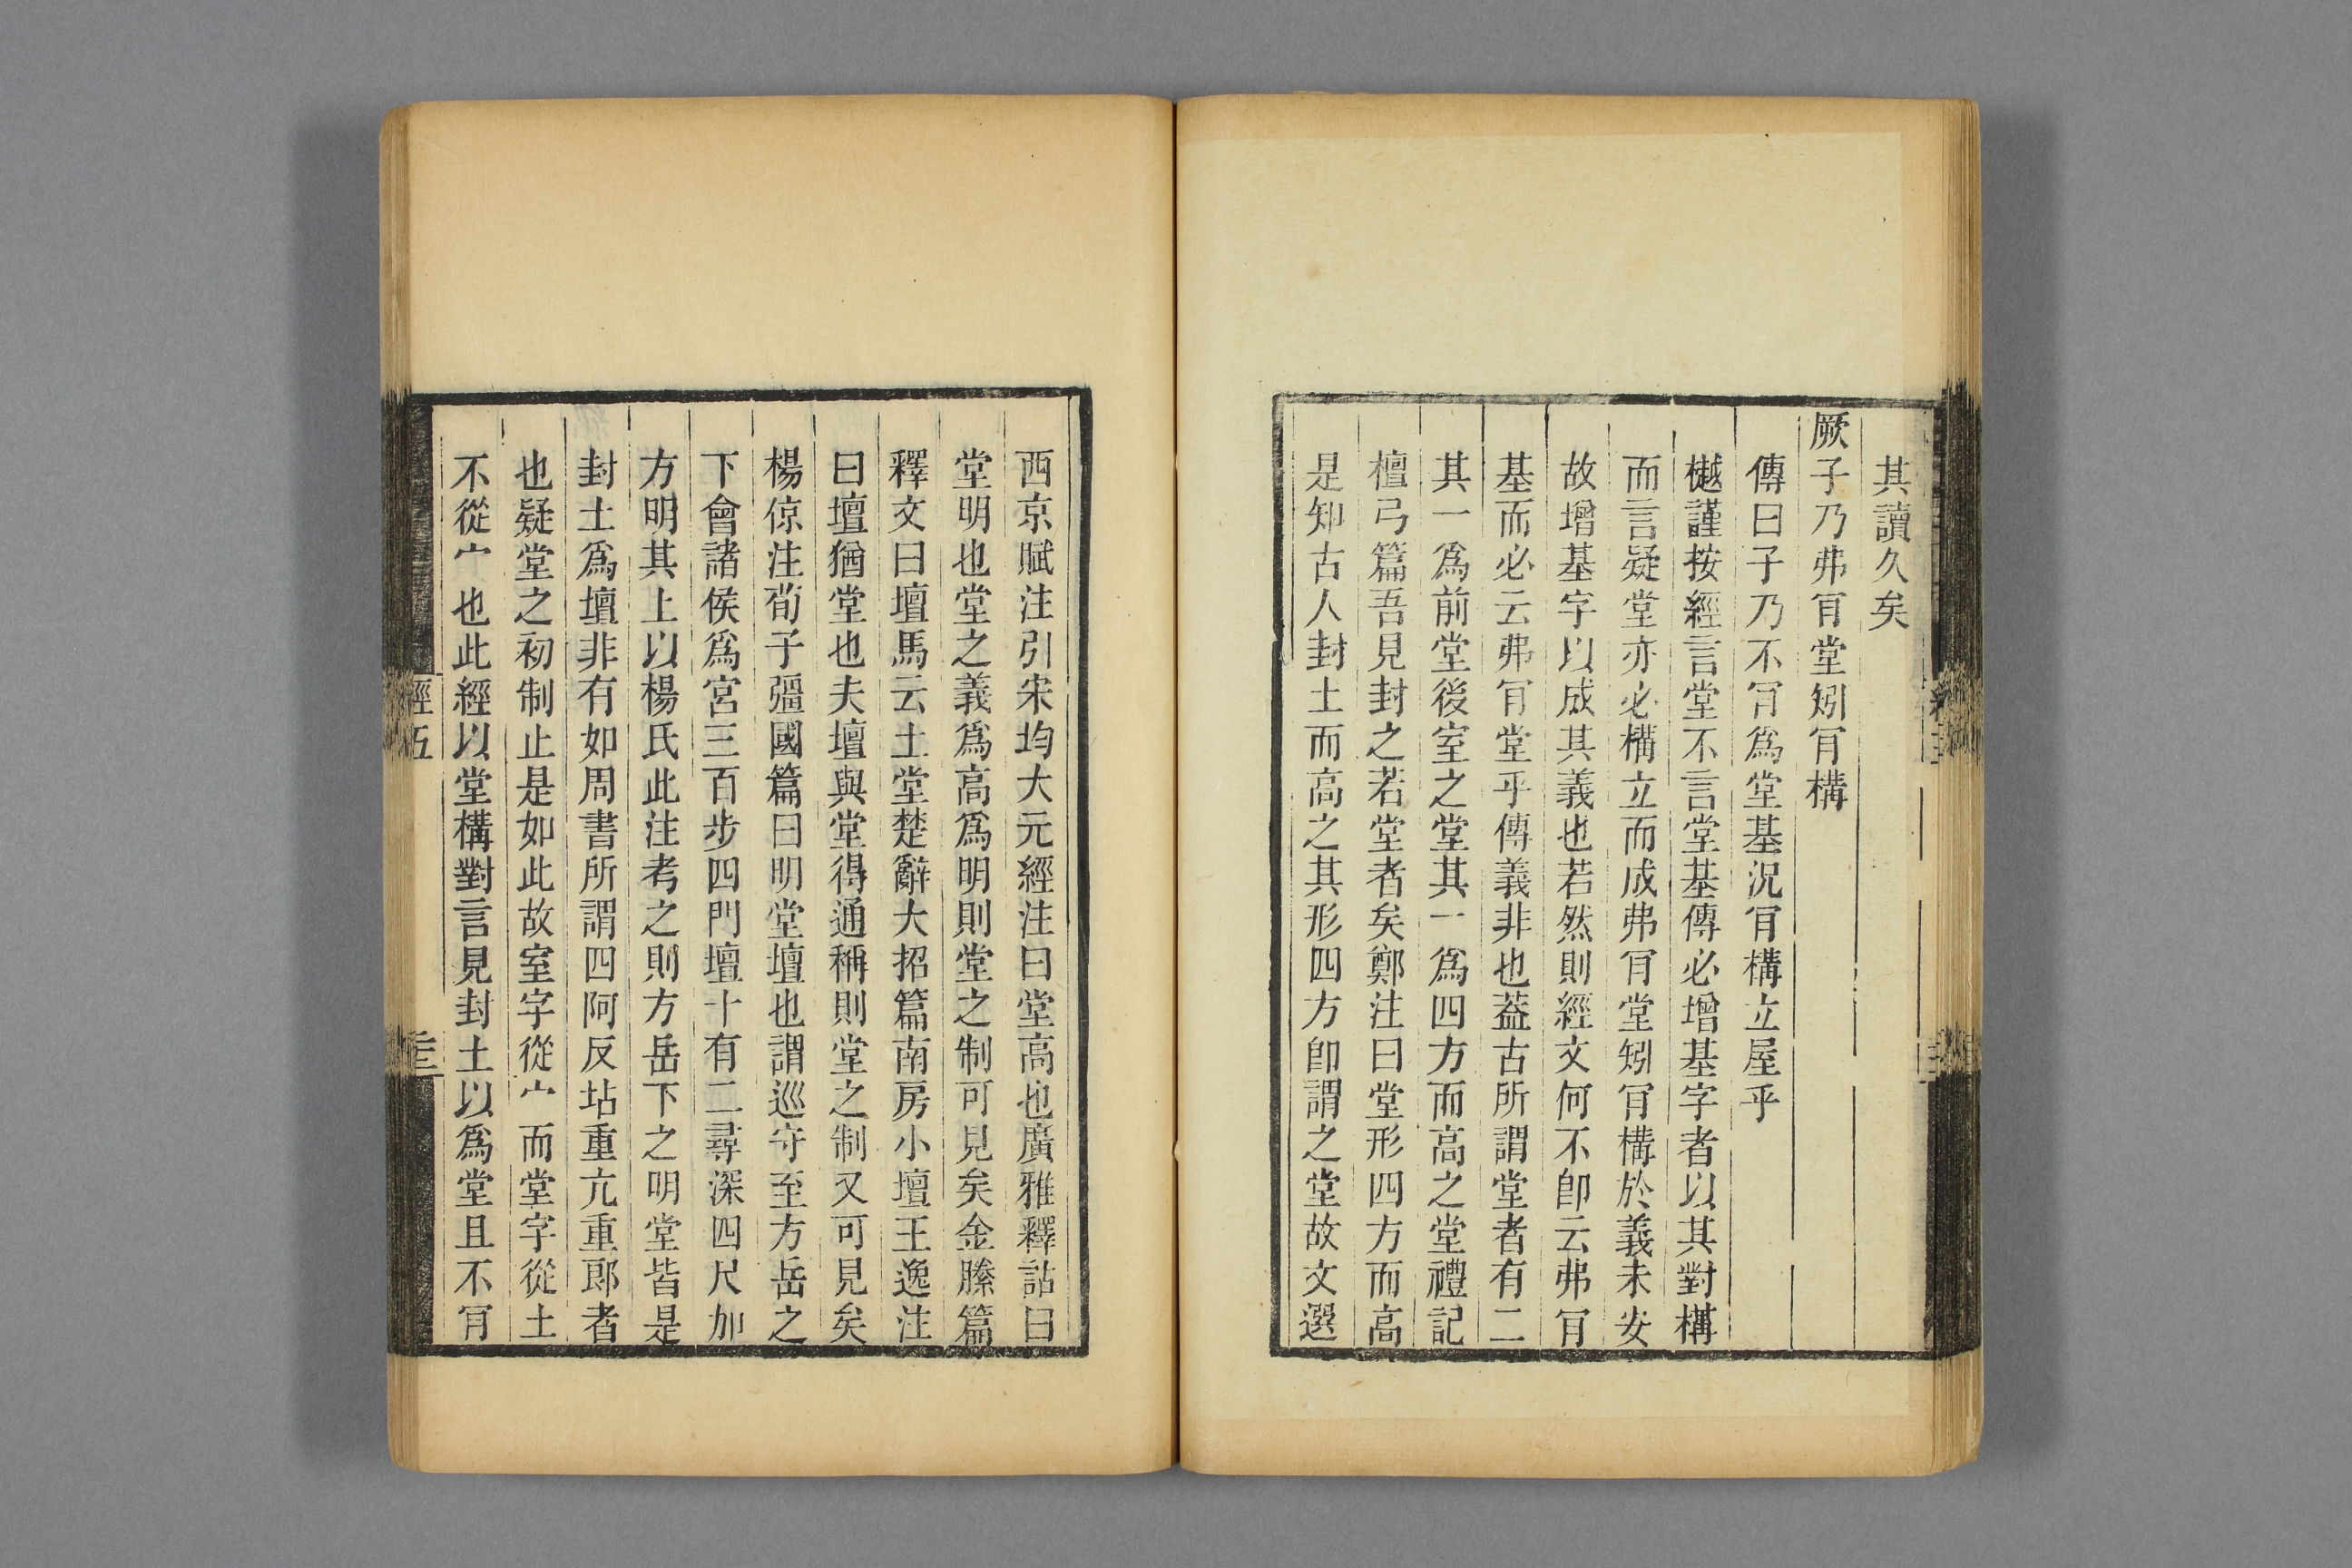 其讀久矣
厥子乃弗肎堂矧肎構
傳曰子乃不肎爲堂基況肎構立屋乎
樾謹按經言堂不言堂基傳必增基字者以其對構
而言疑堂亦必構立而成弗肎堂矧肎構於義未安
故增基字以成其義也若然則經文何不卽云弗肎
基而必云弗肎堂乎傳義非也葢古所謂堂者有二
其一爲前堂後室之堂其一爲四方而高之堂禮記
檀弓篇吾見封之若堂者矣鄭注曰堂形四方而高
是知古人封土而高之其形四方卽謂之堂故文選
西京賦注引宋均大元經注曰堂高也廣雅釋詁曰
堂明也堂之義爲高爲明則堂之制可見矣金縢篇
釋文曰壇馬云土堂楚辭大招篇南房小壇王逸注
曰壇猶堂也夫壇與堂得通稱則堂之制又可見矣
楊倞注荀子彊國篇曰明堂壇也謂巡守至方岳之
下會諸侯爲宮三百步四門壇十有二尋深四尺加
方明其上以楊氏此注考之則方岳下之明堂皆是
封土爲壇非有如周書所謂四阿反坫重亢重郎者
也疑堂之初制止是如此故室字從宀而堂字從土
不從宀也此經以堂構對言見封土以爲堂且不肎
經五